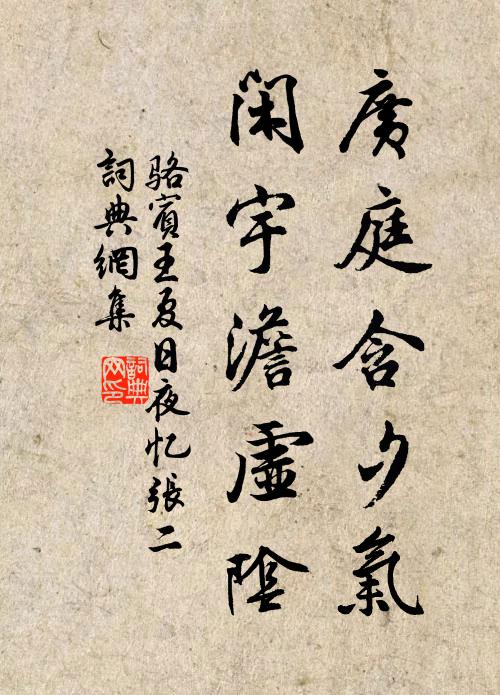 廣庭含夕氣
閑宇澹虛陰
駱賓王夏日夜忆張二
詞典網集
詞典
网印